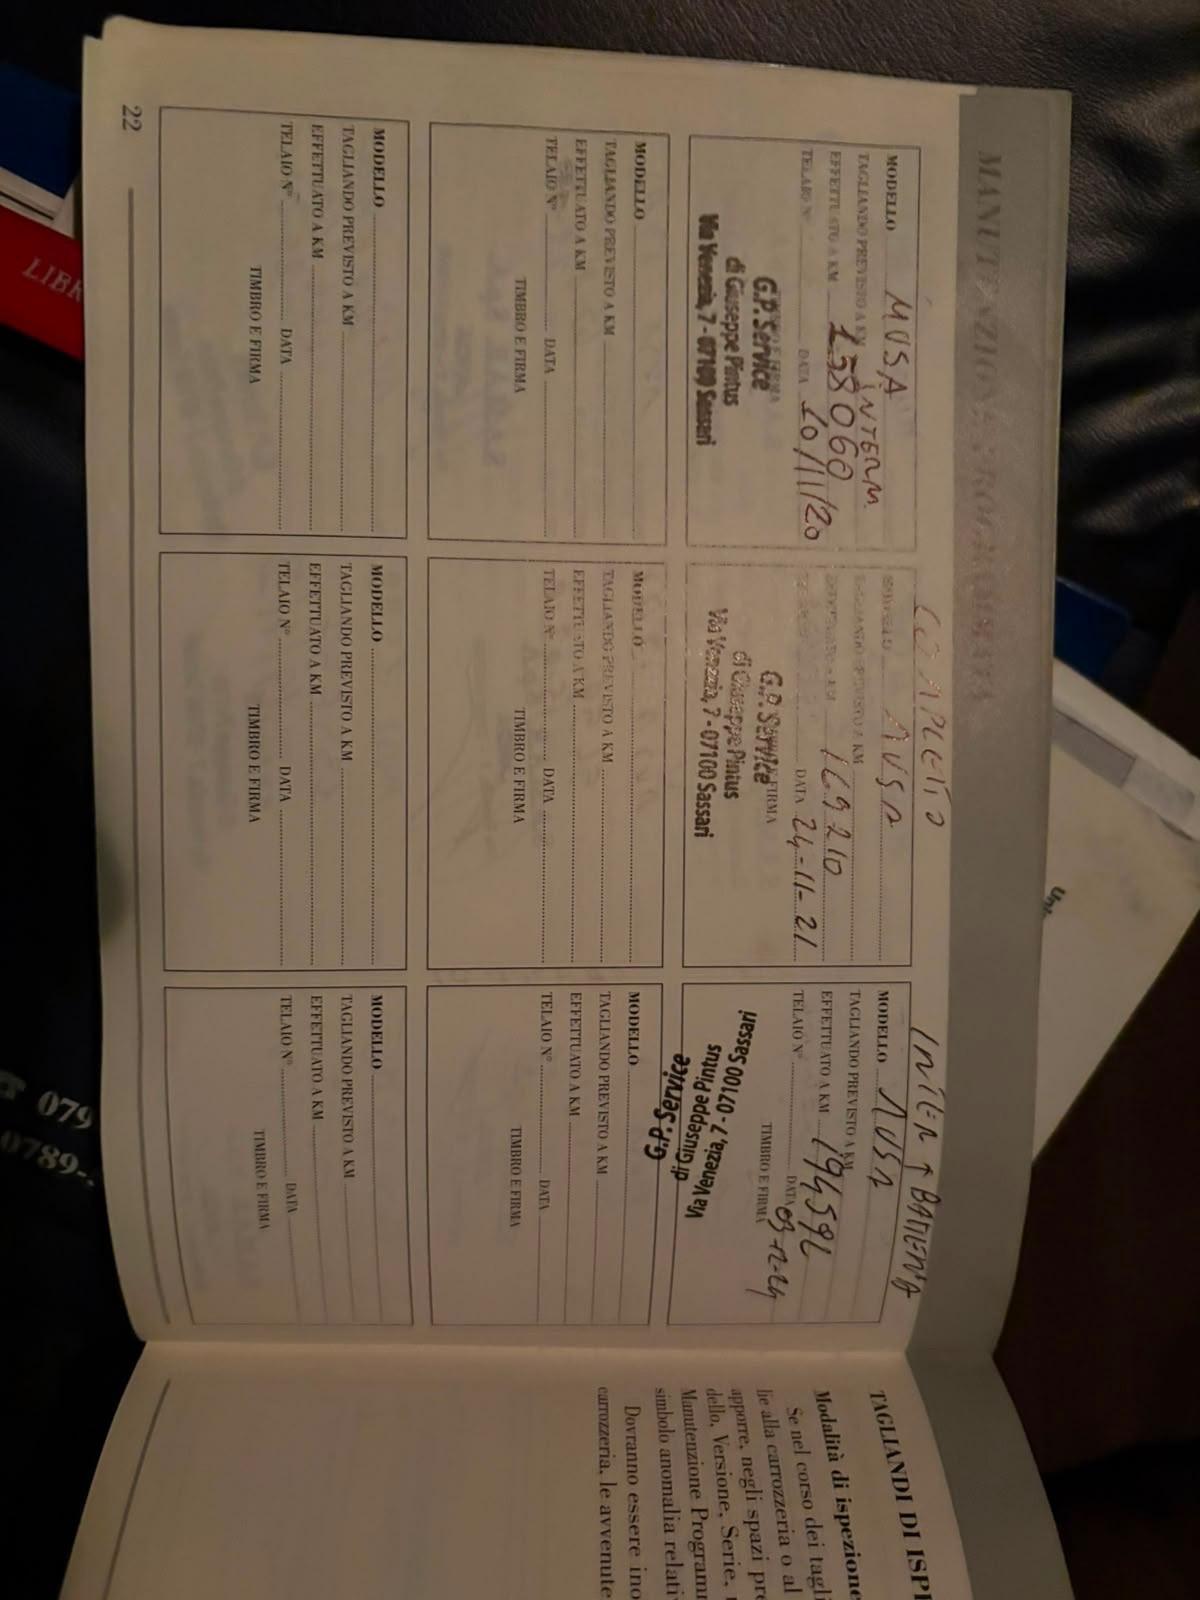 MANUTENZIONE PROGRAMMATA
MODELLO MUSA
TAGLIANDO PREVISTO A KM INTERM
EFFETTUATO A KM 158060
TELAIO N° DATA 20/11/20
TIMBRO E FIRMA
G.P. Service
di Giuseppe Pintus
Via Venezia, 7 - 07100 Sassari
COMPLETO
MODELLO MUSA
TAGLIANDO PREVISTO A KM
EFFETTUATO A KM 169210
TELAIO N° DATA 24-11-21
TIMBRO E FIRMA
G.P. Service
di Giuseppe Pintus
Via Venezia, 7 - 07100 Sassari
INTER + BATTERIA
MODELLO MUSA
TAGLIANDO PREVISTO A KM
EFFETTUATO A KM
TELAIO N° DATA 03-12-24
TIMBRO E FIRMA
G.P. Service
di Giuseppe Pintus
Via Venezia, 7 - 07100 Sassari
MODELLO
TAGLIANDO PREVISTO A KM
EFFETTUATO A KM
TELAIO N° DATA
TIMBRO E FIRMA
MODELLO
TAGLIANDO PREVISTO A KM
EFFETTUATO A KM
TELAIO N° DATA
TIMBRO E FIRMA
MODELLO
TAGLIANDO PREVISTO A KM
EFFETTUATO A KM
TELAIO N° DATA
TIMBRO E FIRMA
MODELLO
TAGLIANDO PREVISTO A KM
EFFETTUATO A KM
TELAIO N° DATA
TIMBRO E FIRMA
MODELLO
TAGLIANDO PREVISTO A KM
EFFETTUATO A KM
TELAIO N° DATA
TIMBRO E FIRMA
MODELLO
TAGLIANDO PREVISTO A KM
EFFETTUATO A KM
TELAIO N° DATA
TIMBRO E FIRMA
22
TAGLIANDI DI ISPE
Modalità di ispezione
Se nel corso dei tagli
lie alla carrozzeria o al
apporre, negli spazi pre
dello, Versione, Serie,
Manutenzione Program
simbolo anomalia relati
Dovranno essere ino
carrozzeria, le avvenute
LIBR
Uni
079
0789-